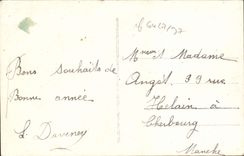 Bons souhaits de
Bonne année
L. Daveney
Monsieur et Madame
Angot 39 rue
Helain à
Cherbourg
Manche